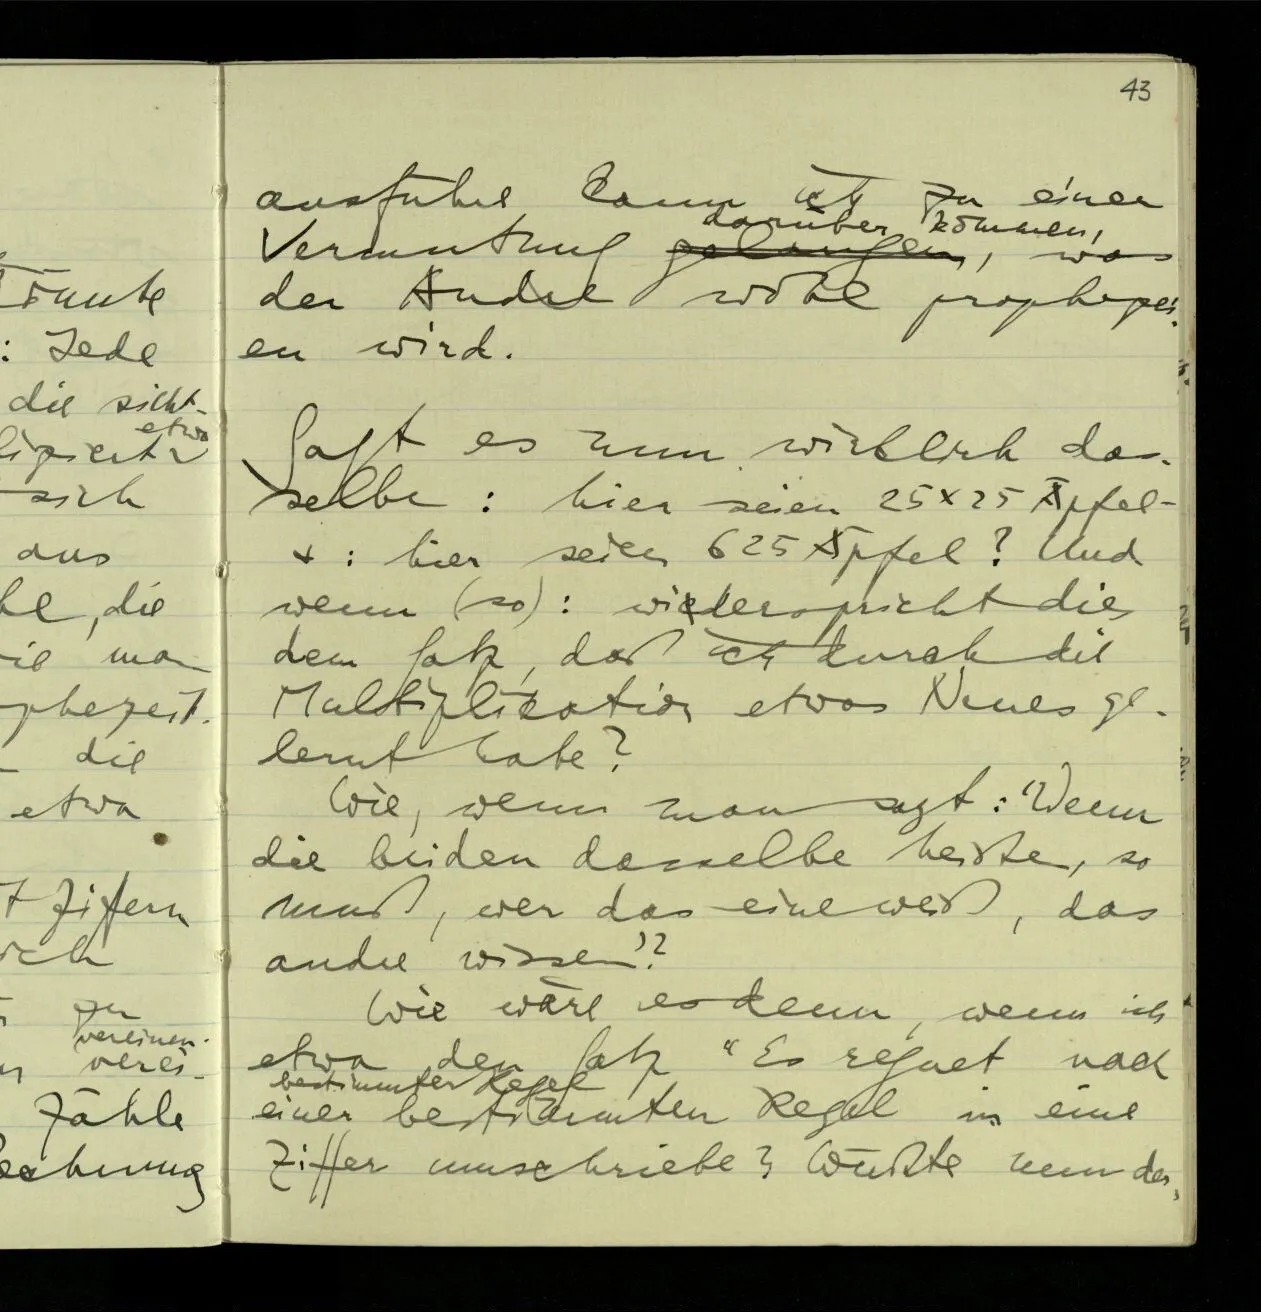 43
ausführe kann ich zu einer
darüber kommen,
Vermutung gelangen, was
der Andre wohl prophezei-
en wird.
Sagt es nun wirklich das-
selbe: hier seien 25×25 Äpfel –
+ : hier seien 625 Äpfel? Und
wenn (so): wiederspricht dies
dem Satz, daß ich durch die
Multiplication etwas Neues ge-
lernt habe?
Wie, wenn man sagt: "Wenn
die beiden dasselbe heißen, so
muß, wer das eine weiß, das
andre wissen"?
Wie wäre es denn, wenn ich
etwa den Satz "Es regnet nach
bestimmter Regel
einer bestimmten Regel in eine
Ziffer umschriebe? Wüßte nun der,
könnte
: Jede
die sicht-
etwa
sich
aus
die
man
phezeit.
die
etwa
Ziffern
ich
zu
vereinen-
verei-
Zähle
Rechnung